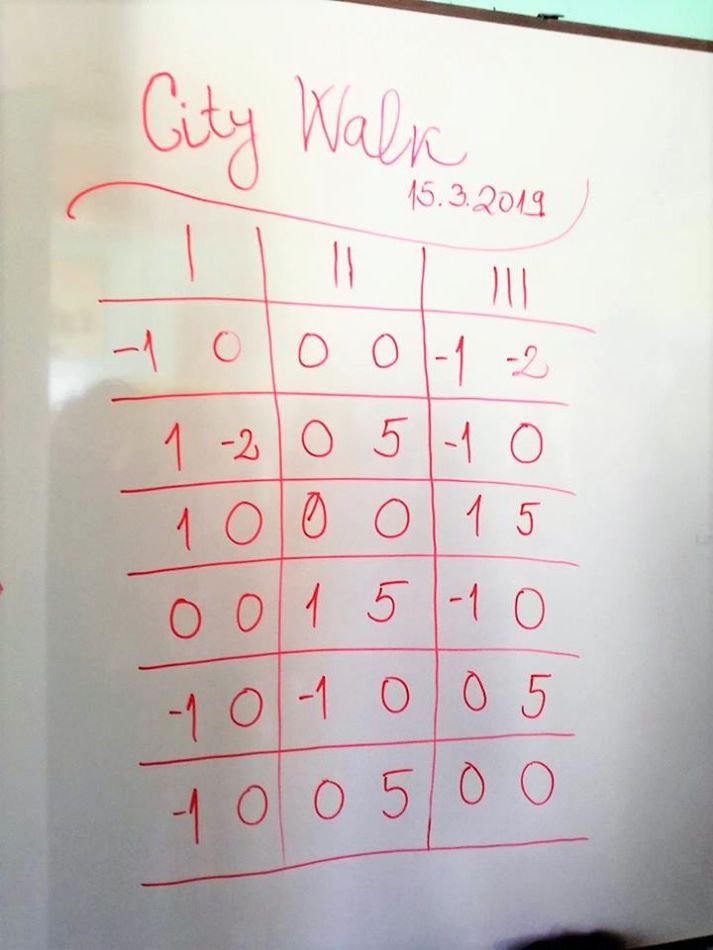 City Walk
15.3.2019
I II III
-1 0 0 0 -1 -2
1 -2 0 5 -1 0
1 0 0 0 1 5
0 0 1 5 -1 0
-1 0 -1 0 0 5
-1 0 0 5 0 0